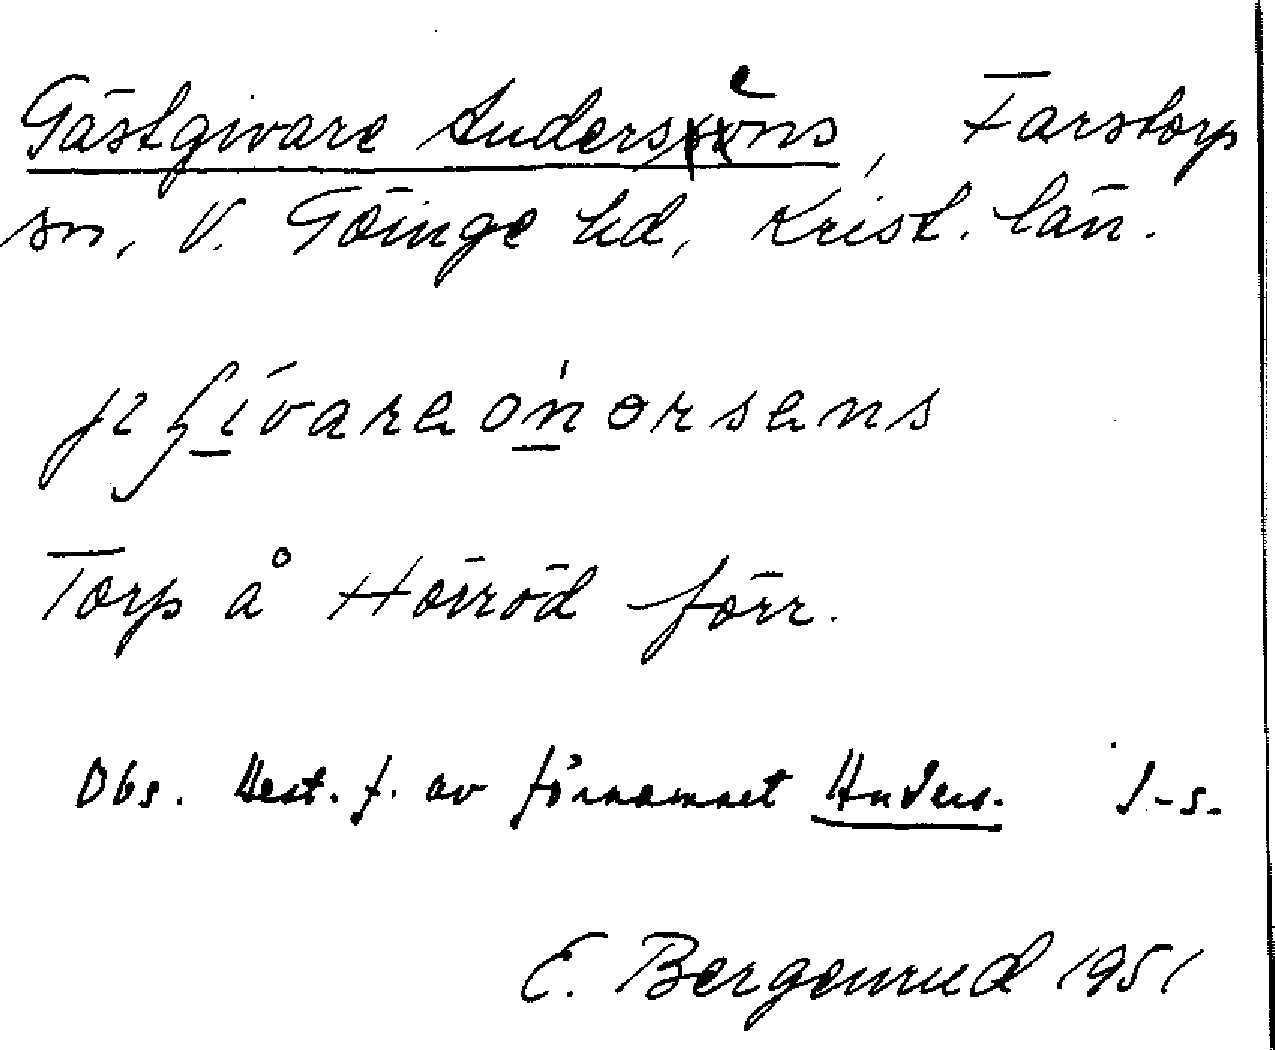 Gästgivare Andersens, Farstorp
sn, V. Göinge hd, Krist. län.
Torp å Höiröd förr.
Obs. Best. f. av förnamnet Anders. S-s.
E. Bergenrud 1951